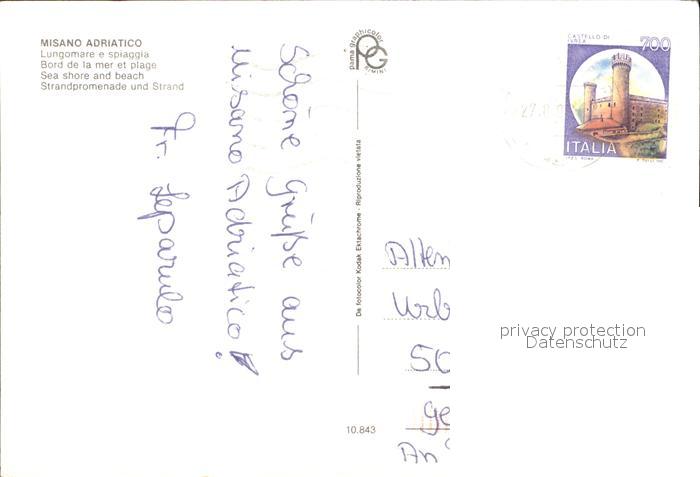 MISANO ADRIATICO
Lungomare e spiaggia
Bord de la mer et plage
Sea shore and beach
Strandpromenade und Strand
Schöne Grüße aus
Misano Adriatico!
Fr.
pama graphicolor
PG
RIMINI
De fotocolor Kodak Ektachrome - Riproduzione vietata
10.843
CASTELLO DI
IVREA
700
ITALIA
27.8
Alten
Urb
50
ge
An
privacy protection
Datenschutz